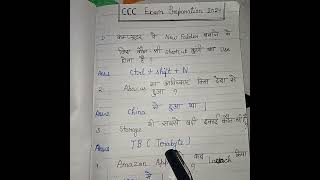 CCC Exam Preparation 2024
1. कम्प्यूटर में New Folder बनाने के
लिए कौन-सी shortcut कुंजी का use
होता है।
Ans:1 Ctrl + Shift + N
2 Abacus का आविष्कार किस देश में
हुआ था ?
Ans:2 China में हुआ था।
3 Storage की सबसे बड़ी इकाई कौन सी है
Ans:3 TB ( Terabyte )
Amazon कब Launch किया